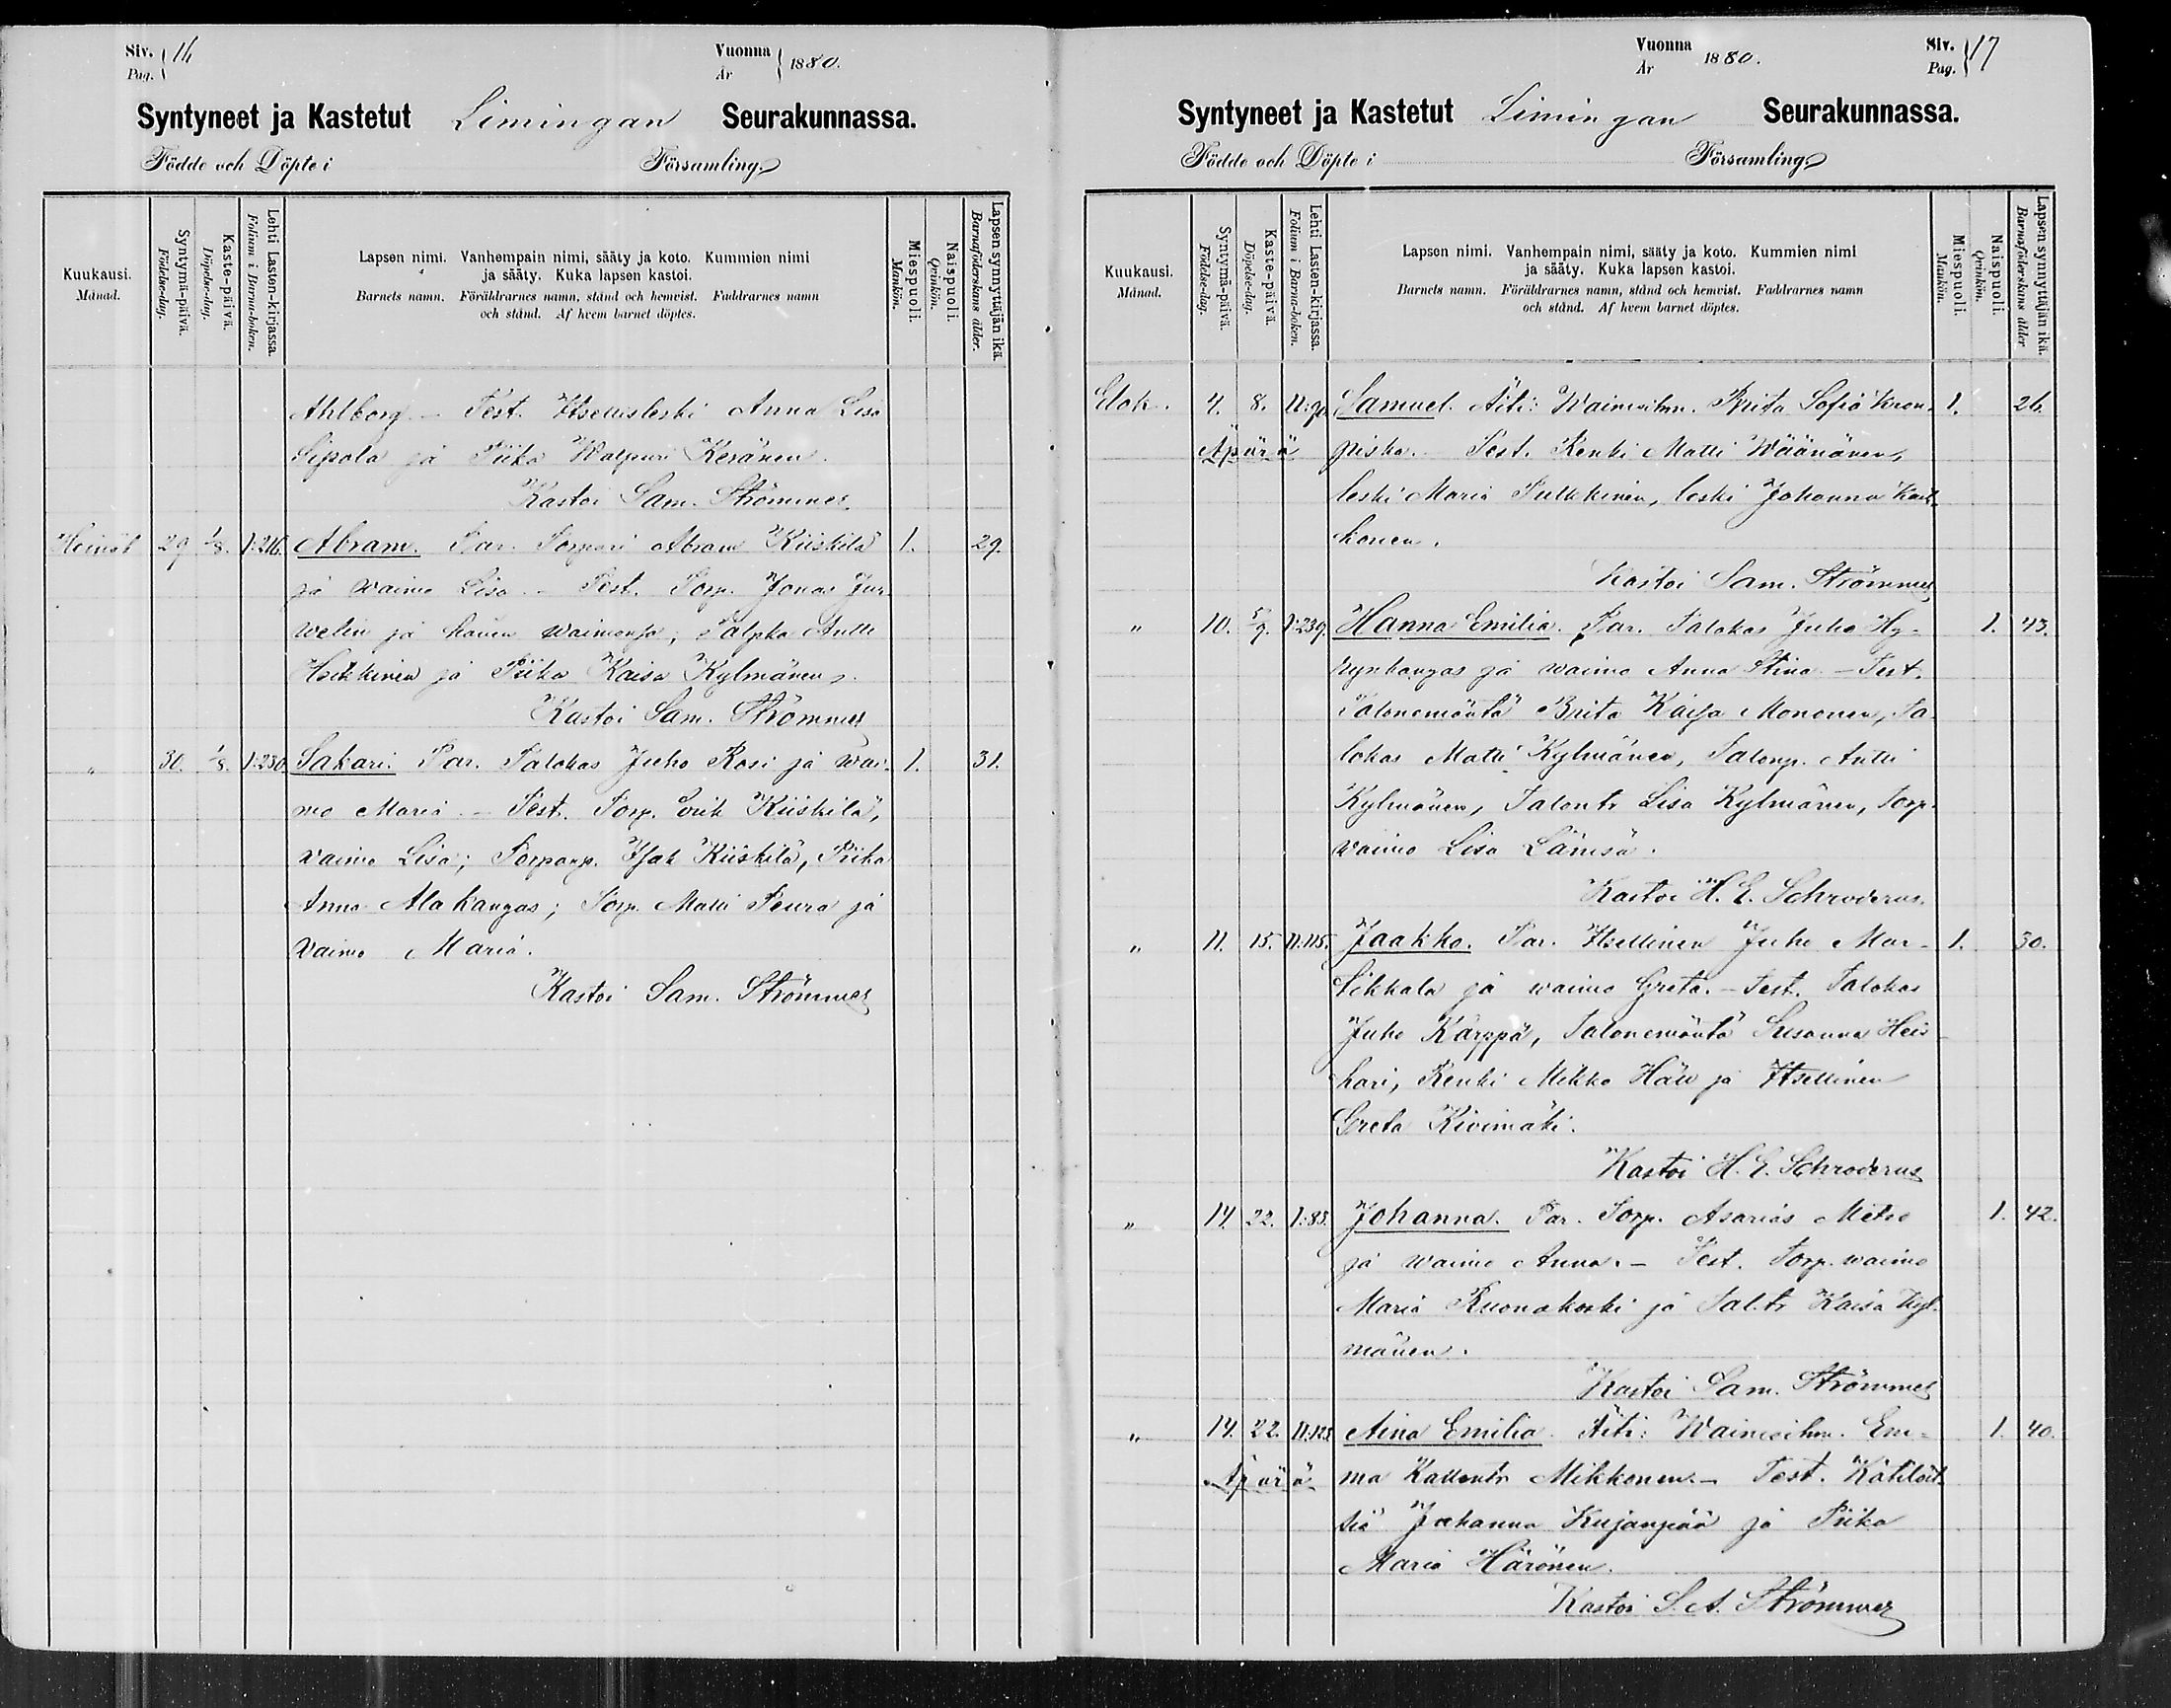 Siv. Pag. 16
Vuonna År 1880.
Syntyneet ja Kastetut Limingan Seurakunnassa.
Födde och Döpte i Församling.
Kuukausi. Månad.
Syntymä-päivä. Födelse-dag.
Kaste-päivä. Döpelse-dag.
Lehti Lasten-kirjassa. Folium i Barna-boken.
Lapsen nimi. Vanhempain nimi, sääty ja koto. Kummien nimi
ja sääty. Kuka lapsen kastoi.
Barnets namn. Föräldrarnes namn, stånd och hemvist. Faddrarnes namn
och stånd. Af hvem barnet döptes.
Miespuoli. Mankön.
Naispuoli. Qvinkön.
Lapsen synnyttäjän ikä. Barnaföderskans ålder.
Ahlborg. – Test. Itsellisleski Anna Lisa
Sipola ja Piika Walpuri Keränen.
Kastoi Sam. Strömmer
Heinäk 29 1/8. I:216. Abram. Par. Torpari Abram Kiiskilä 1. 29.
ja waimo Lisa. – Test. Torp. Jonas Jur-
welin ja hänen waimonsa; Talpka Antti
Heikkinen ja Piika Kaisa Kylmänen.
Kastoi Sam. Strömmer
" 30. 1/8. I:230. Sakari. Par. Talokas Juho Rosi ja wai- 1. 31.
mo Maria. – Test. Torp. Erik Kiiskilä,
vaimo Lisa; Torpanp. Isak Kiiskilä, Piika
Anna Alakangas; Torp. Matti Peura ja
Vaimo Maria.
Kastoi Sam. Strömmer
Vuonna År 1880.
Siv. Pag. 17
Syntyneet ja Kastetut Limingan Seurakunnassa.
Födde och Döpte i Församling.
Kuukausi. Månad.
Syntymä-päivä. Födelse-dag.
Kaste-päivä. Döpelse-dag.
Lehti Lasten-kirjassa. Folium i Barna-boken.
Lapsen nimi. Vanhempain nimi, sääty ja koto. Kummien nimi
ja sääty. Kuka lapsen kastoi.
Barnets namn. Föräldrarnes namn, stånd och hemvist. Faddrarnes namn
och stånd. Af hvem barnet döptes.
Miespuoli. Mankön.
Naispuoli. Qvinkön.
Lapsen synnyttäjän ikä. Barnaföderskans ålder
Elok. 4. 8. II:90. Samuel. Äiti: Waimoihm. Brita Sofia Kron- 1. 26.
Äpärä piska. – Test. Renki Matti Wäänänen,
leski Maria Pulkkinen, leski Johanna
konen.
Kastoi Sam. Strömmer
" 10. 5/9. I:239. Hanna Emilia. Par. Talokas Juho Hy- 1. 43.
rynkangas ja waimo Anna Stina – Test.
Talonemäntä Brita Kaisa Mononen, Ta-
lokas Matti Kylmänen, Talonp. Antti
Kylmänen, Talontr Lisa Kylmänen, Torp.
waimo Lisa Länsä.
Kastoi H. E. Schroderus.
" 11. 15. II:115. Jaakko. Par. Itsellinen Juho Mar- 1. 30.
tikkala ja waimo Greta. – Test. Talokas
Juho Kärppä, Talonemäntä Susanna Heis-
kari, Renki Mikko Häli ja Itsellinen
Greta Kivimäki.
Kastoi H. E. Schroderus
" 14. 22. I:83. Johanna. Par. Torp. Asarias Metso 1. 42.
ja waimo Anna. – Test. Torp. waimo
Maria Ruonakoski ja Tal.tr Kaisa Kyl-
mänen.
Kastoi Sam. Strömmer
" 14. 22. II:123 Aina Emilia. Äiti: Waimoihm. Em- 1. 40.
Äpärä ma Kallentr Mikkonen. – Test. Kätilöit-
siä Johanna Kujanpää ja Piika
Maria Härönen.
Kastoi S. A. Strömmer